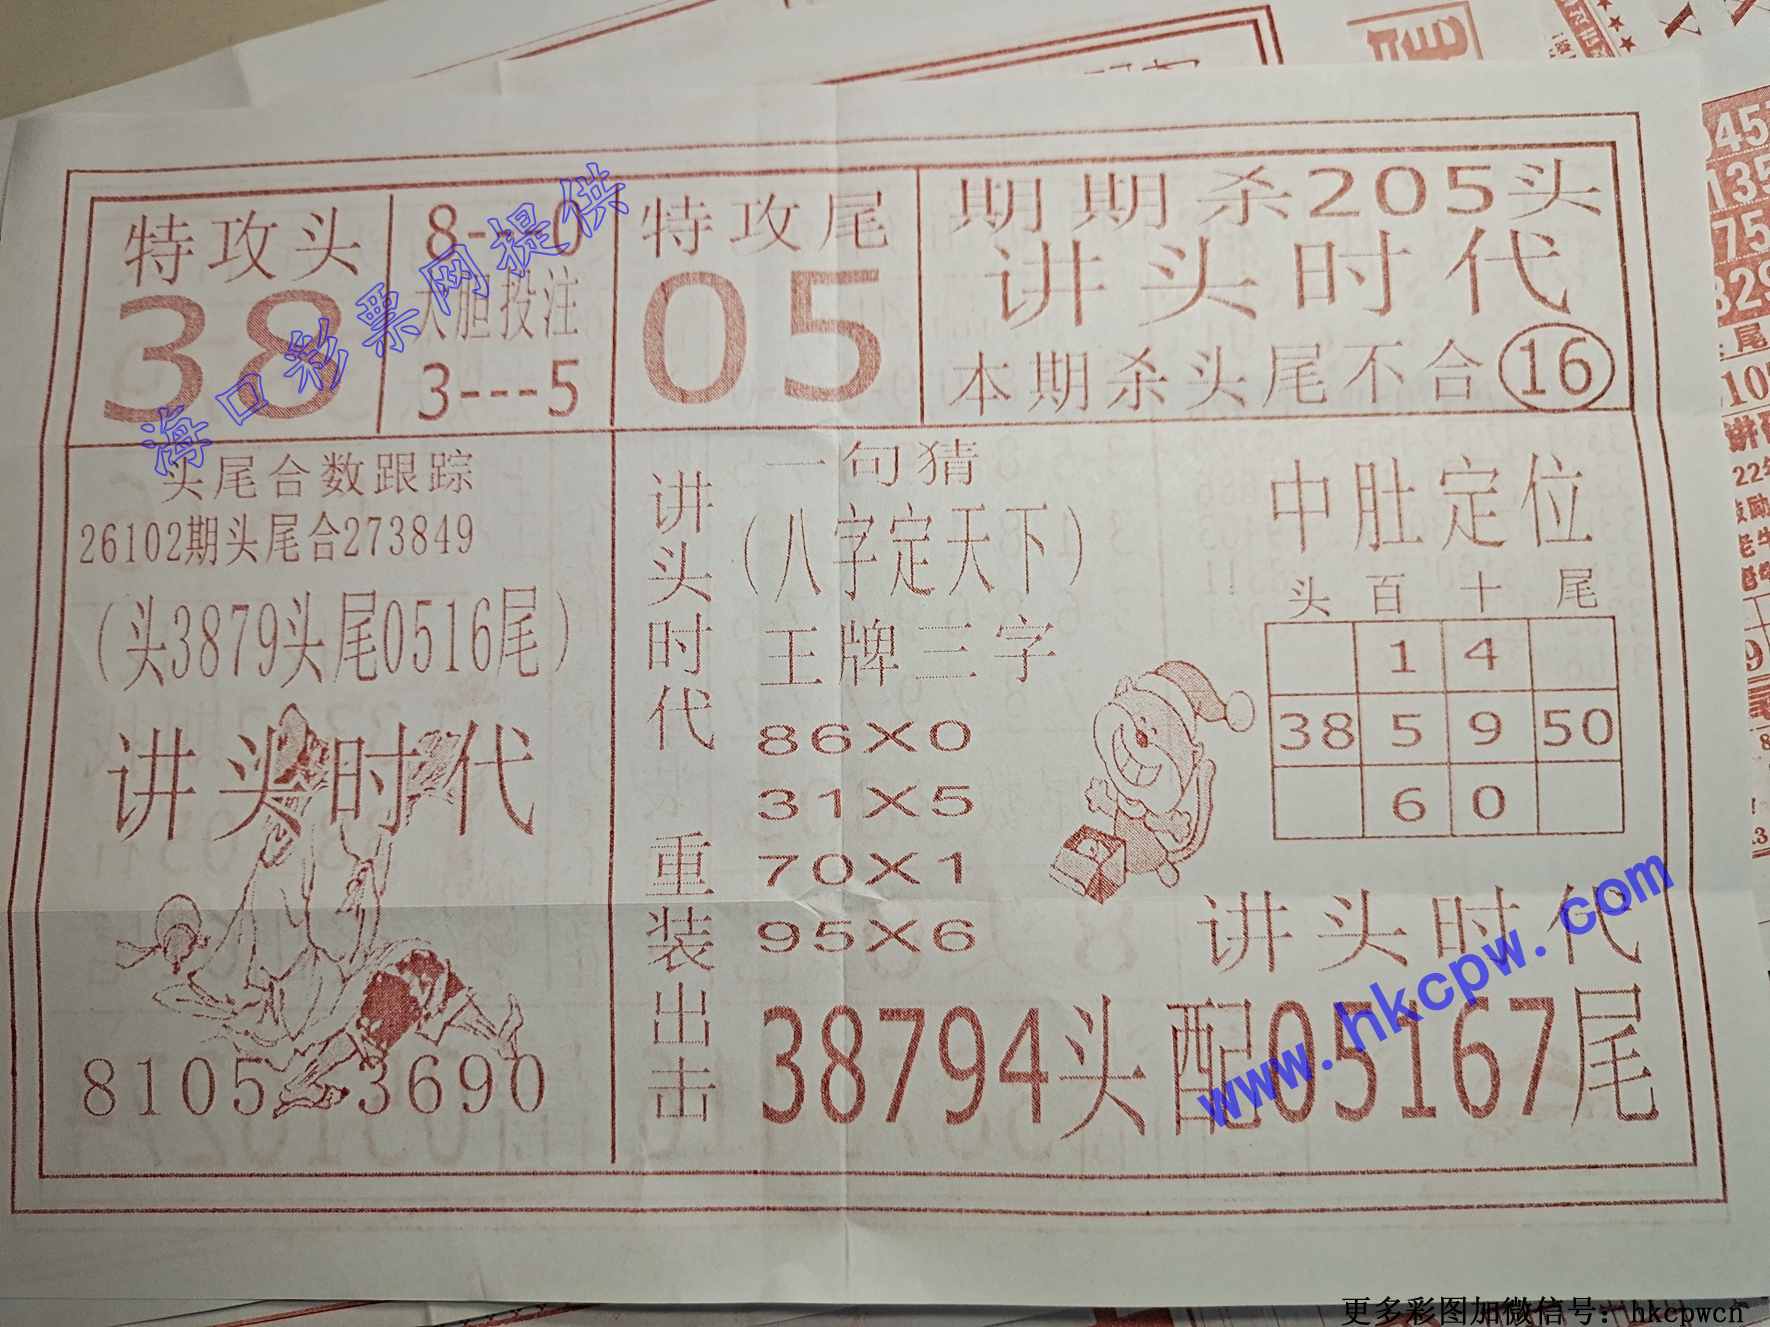 特攻头
38
8---0
大胆投注
3---5
特攻尾
05
期期杀205头
讲头时代
本期杀头尾不合16
头尾合数跟踪
26102期头尾合273849
（头3879头尾0516尾）
讲头时代
8105 3690
讲头时代重装出击
一句猜
（八字定天下）
王牌三字
86X0
31X5
70X1
95X6
中肚定位
头 百 十 尾
1 4
38 5 9 50
6 0
讲头时代
38794头配05167尾
海口彩票网提供
www.hkcpw.com
更多彩图加微信号：hkcpwcn